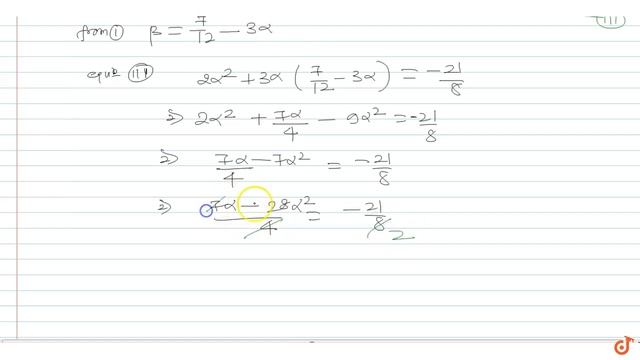 (III)
from ① β = 7/12 − 3α
equⁿ (III) 2α² + 3α (7/12 − 3α) = −21/8
⇒ 2α² + 7α/4 − 9α² = −21/8
⇒ 7α/4 − 7α² = −21/8
⇒ 7α − 28α²/4 = −21/8 2
doubtnut